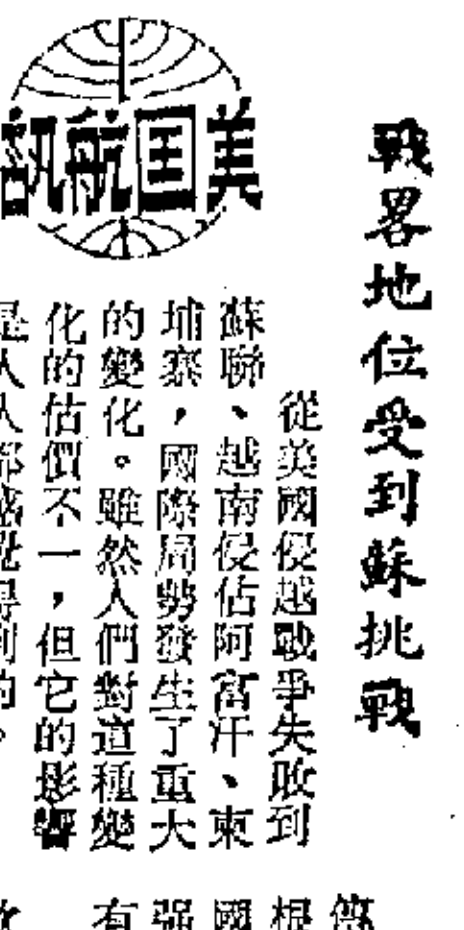 戰畧地位受到蘇挑戰
美国航訊
從美國侵越戰爭失敗到
蘇聯、越南侵佔阿富汗、柬
埔寨，國際局勢發生了重大
的變化。雖然人們對這種變
化的估價不一，但它的影響
是人人都感覺得到的。
根
國
强
有